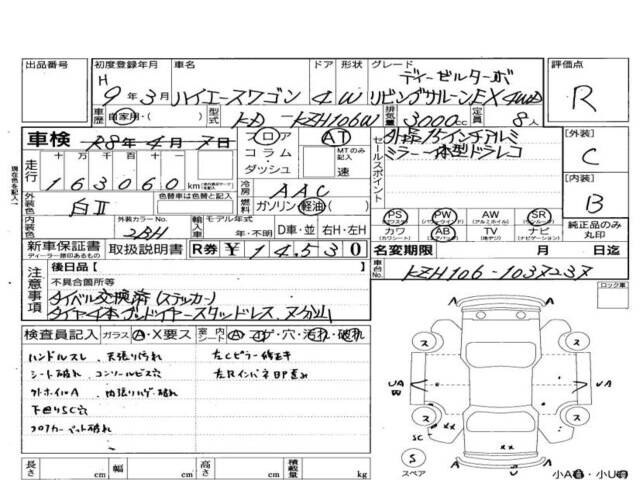 出品番号
初度登録年月
車名
ドア 形状
グレード
評価点
H
9年3月
ハイエースワゴン
4W
ディーゼルターボ
リビングサルーンEX 4WD
R
車歴
自家用・( )
型式
KD-KZH106W
排気量
3000cc
定員
8人
現在色を記入→
車検
R8年4月7日
フロア
コラム・
ダッシュ
AT
MTのみ記入
速
セールスポイント
外品15インチアルミ
ミラー一体型ドラレコ
[外装]
C
[内装]
B
走行
十 万 千 百 十 一
163060
km
冷房
AAC
外装色
白Ⅱ
色替車は色替と記入
燃料
ガソリン 軽油 ( )
PS
PW
AW
SR
カワ
AB
TV
ナビ
純正品のみ丸印
内装色
外装カラーNo.
2BH
輸入車
モデル年式
年・不明
D車・並
右H・左H
新車保証書
ディーラー捺印あるもの
取扱説明書
R券
¥14,530
名変期限
月 日迄
車台No.
KZH106-1037237
注意事項
後日品[ ]
不具合箇所等
タイベル交換済(ステッカー)
ロック車
検査員記入
ガラス A・X要ス
室内 シート
・穴・汚れ・破れ
ハンドルスレ 天張り汚れ
左Cピラー修正キ
シート破れ コンソールビス穴
外ホイルA
下廻りSC穴
フロアカーペット破れ
UA
UA
ス
ス
ス
ス
SC
xx
xx
U
S
スペア
小A
・小U
長さ cm
幅 cm
高さ cm
積載量 kg